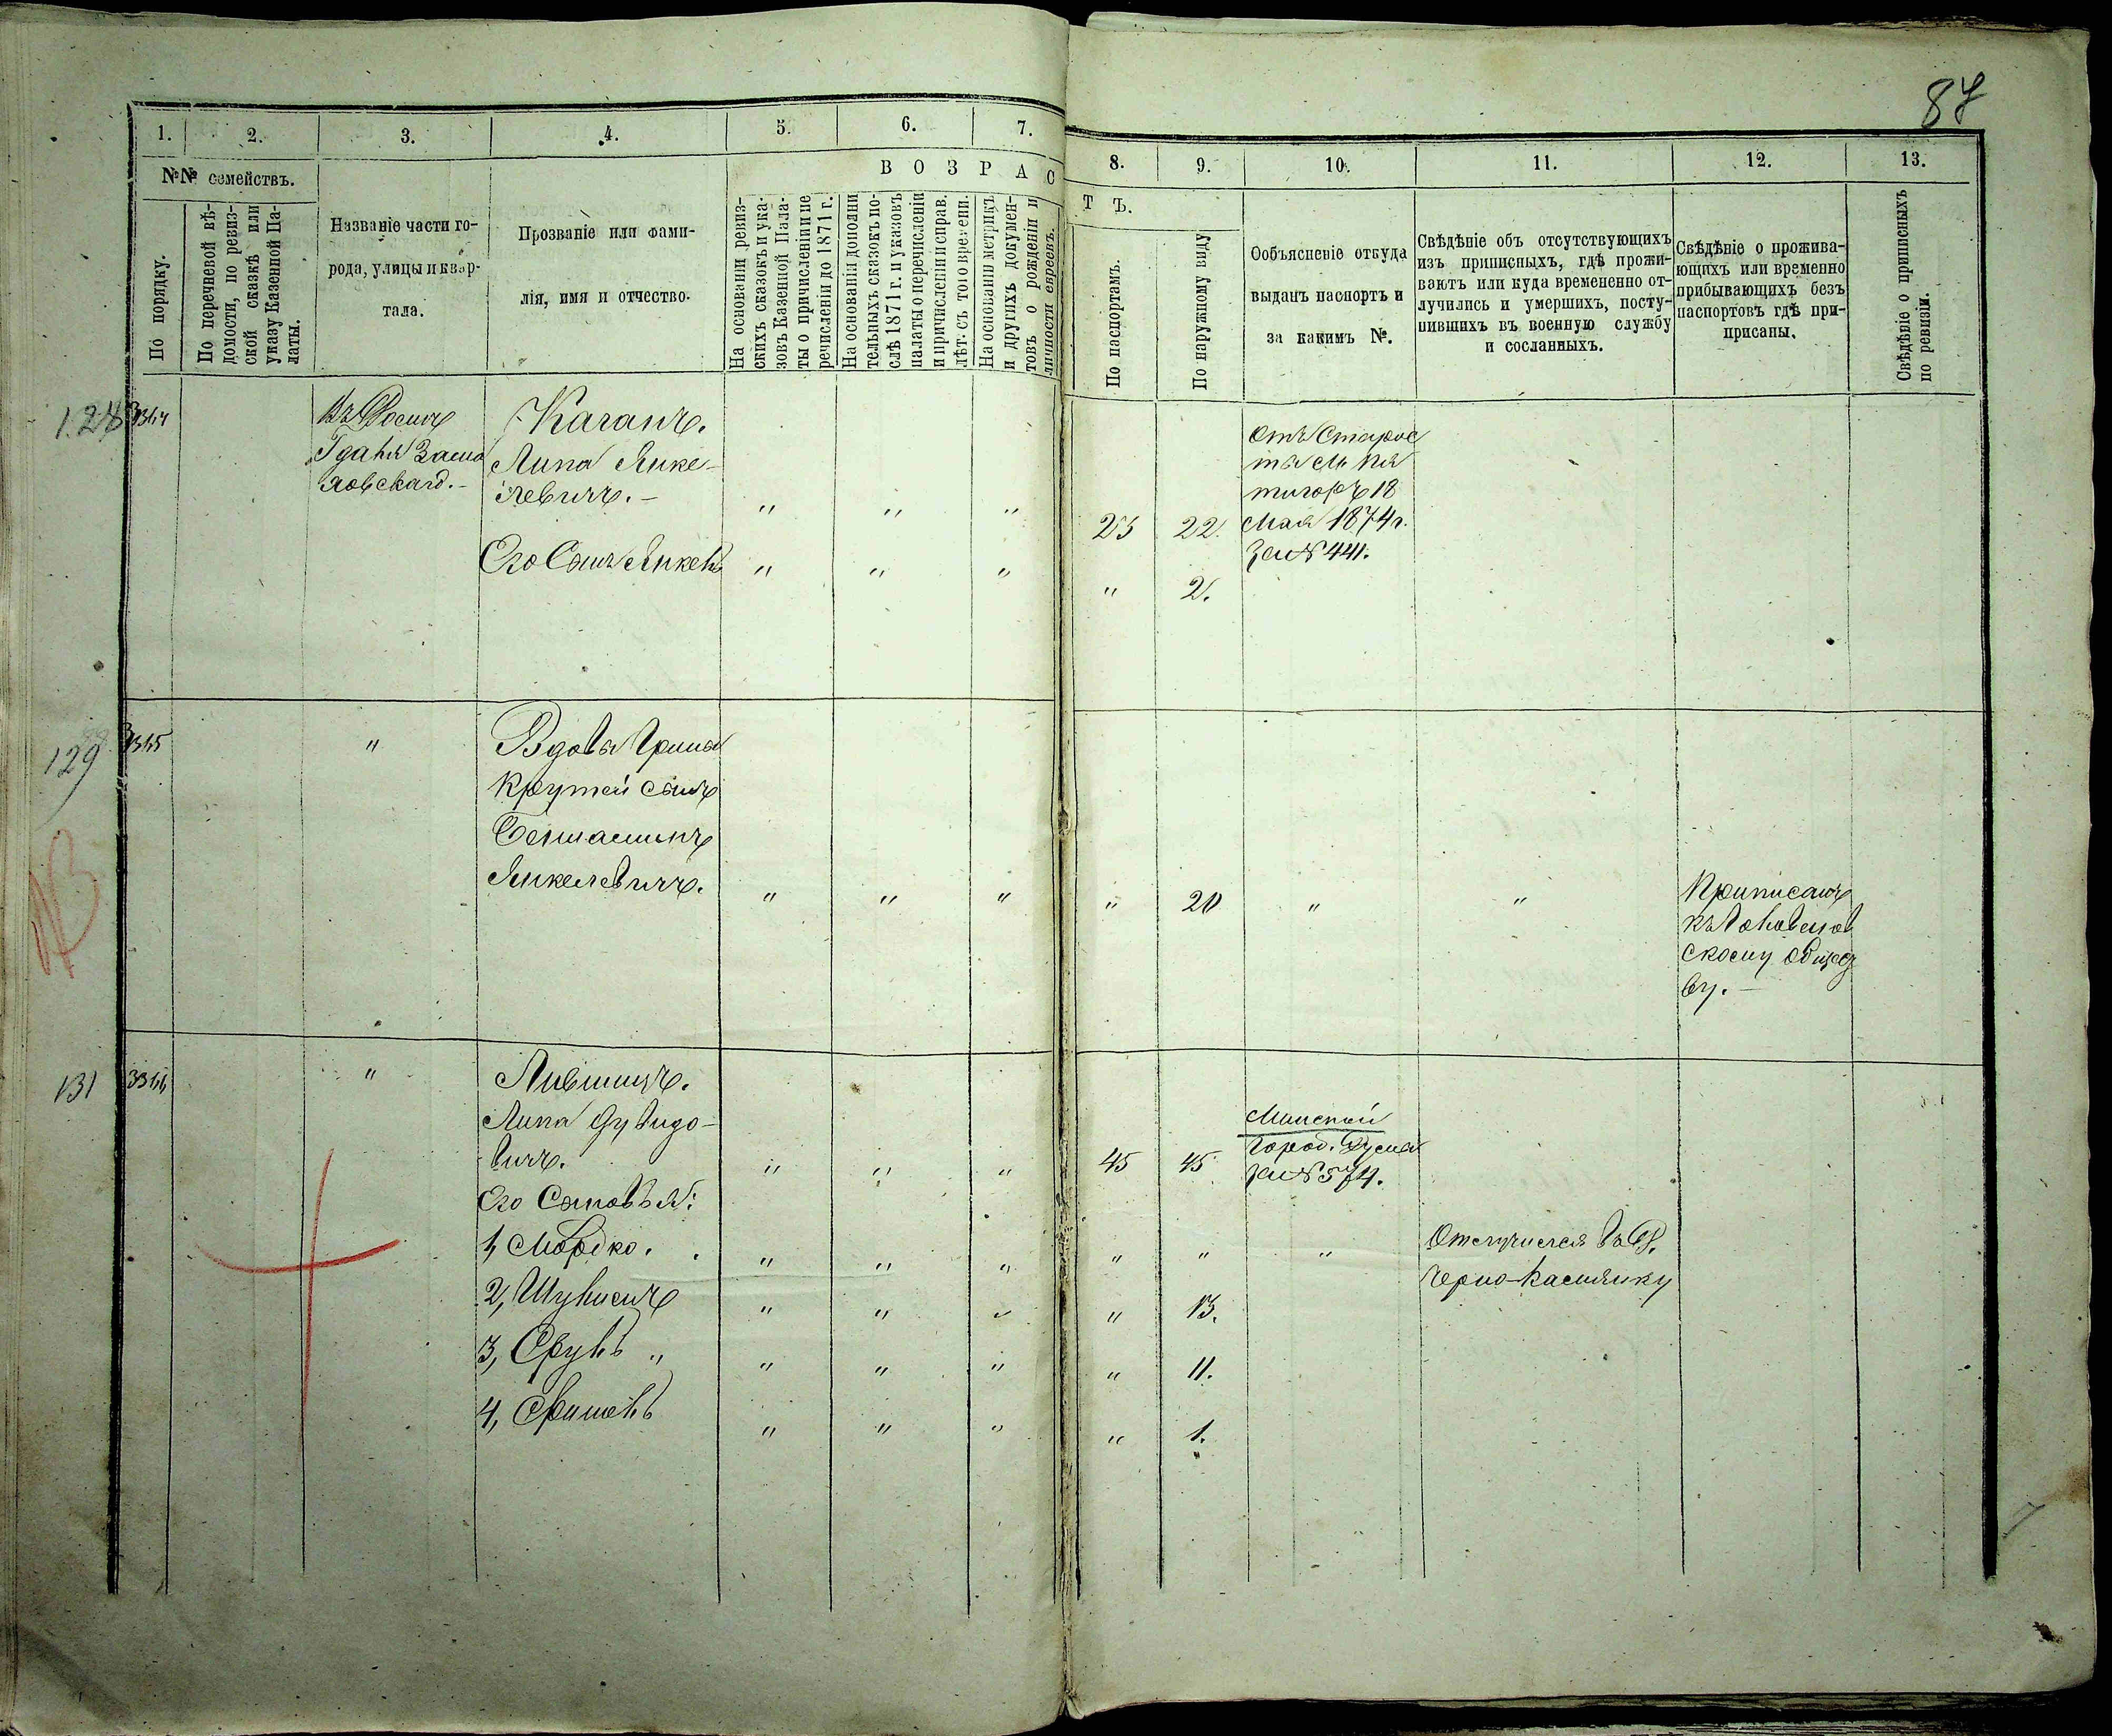 87
1. 2. 3. 4. 5. 6. 7.
8. 9. 10. 11. 12. 13.
№№ семействъ.
По порядку.
По перечневой вѣ-
домости, по ревиз-
ской сказкѣ или
указу Казенной Па-
латы.
Названіе части го-
рода, улицы и квар-
тала.
Прозваніе или фами-
лія, имя и отчество.
ВОЗРАС
ТЪ.
На основаніи ревиз-
скихъ сказокъ и ука-
зовъ Казенной Пала-
ты о причисленіи и пе
речисленіи до 1871 г.
На основаніи дополни
тельныхъ сказокъ по-
слѣ 1871 г. и указовъ
палаты о перечисленіи
и причисленіи и справ.
лѣт. съ того времени.
На основаніи метрикъ
и другихъ докумен-
товъ о рожденіи и
личности евреевъ.
По паспортамъ.
По наружному виду
Ообъясненіе откуда
выданъ паспортъ и
за какимъ №.
Свѣдѣніе объ отсутствующихъ
изъ приписныхъ, гдѣ прожи-
ваютъ или куда временено от-
лучились и умершихъ, посту-
пившихъ въ военную службу
и сосланныхъ.
Свѣдѣніе о прожива-
ющихъ или временно
прибывающихъ безъ
паспортовъ гдѣ при-
присаны.
Свѣдѣніе о приписныхъ
по ревизіи.
128
Каганъ.
Липа Янке-
левичъ.-
" " " 25 22.
Отъ Старос
ты м. Пя
тигоръ 18
Мая 1874 г.
за № 441.
Его Сынъ Янкель " " " " 2.
129
"
Вдова
Крутей сынъ
Беніаминъ
Янкелевичъ.
" " " " 20 " "
Приписанъ
скому общес
ву.-
131
"
Лившицъ.
Липа
вичъ.
" " " 45 45
Минской
Город. Дума
за № 574.
Его Сыновья:
1, Мордко. " " " " " "
Отлучился въ
2, " " " " 13.
3, Сруль " " " " " 11.
4, " " " " 1.